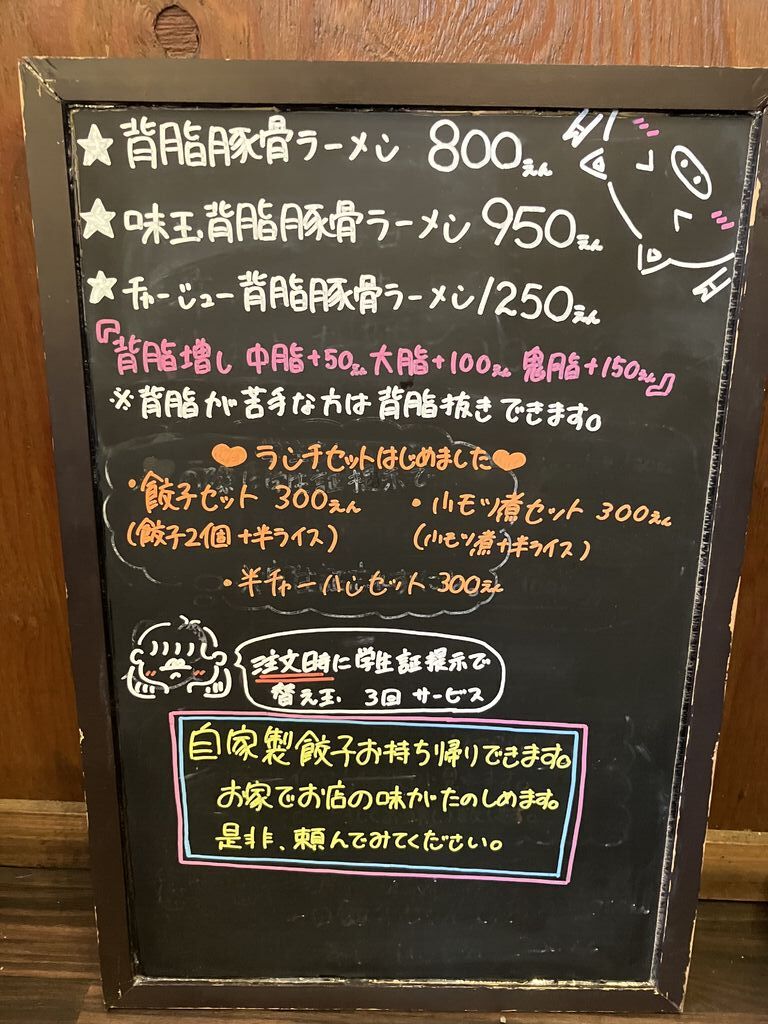 ★背脂豚骨ラーメン 800えん
★味玉背脂豚骨ラーメン 950えん
★チャーシュー背脂豚骨ラーメン 1250えん
『背脂増し 中脂+50えん 大脂+100えん 鬼脂+150えん』
※背脂が苦手な方は背脂抜きできます。
♥ランチセットはじめました♥
・餃子セット 300えん ・小モツ煮セット 300えん
(餃子2個+半ライス) (小モツ煮+半ライス)
・半チャーハンセット 300えん
注文時に学生証提示で
替え玉 3回 サービス
自家製餃子お持ち帰りできます。
お家でお店の味がたのしめます。
是非、頼んでみてください。